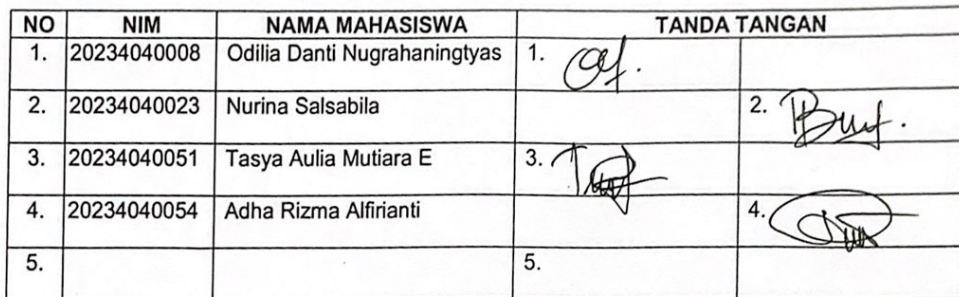 NO NIM NAMA MAHASISWA TANDA TANGAN
1. 20234040008 Odilia Danti Nugrahaningtyas 1.
2. 20234040023 Nurina Salsabila 2.
3. 20234040051 Tasya Aulia Mutiara E 3.
4. 20234040054 Adha Rizma Alfirianti 4.
5. 5.